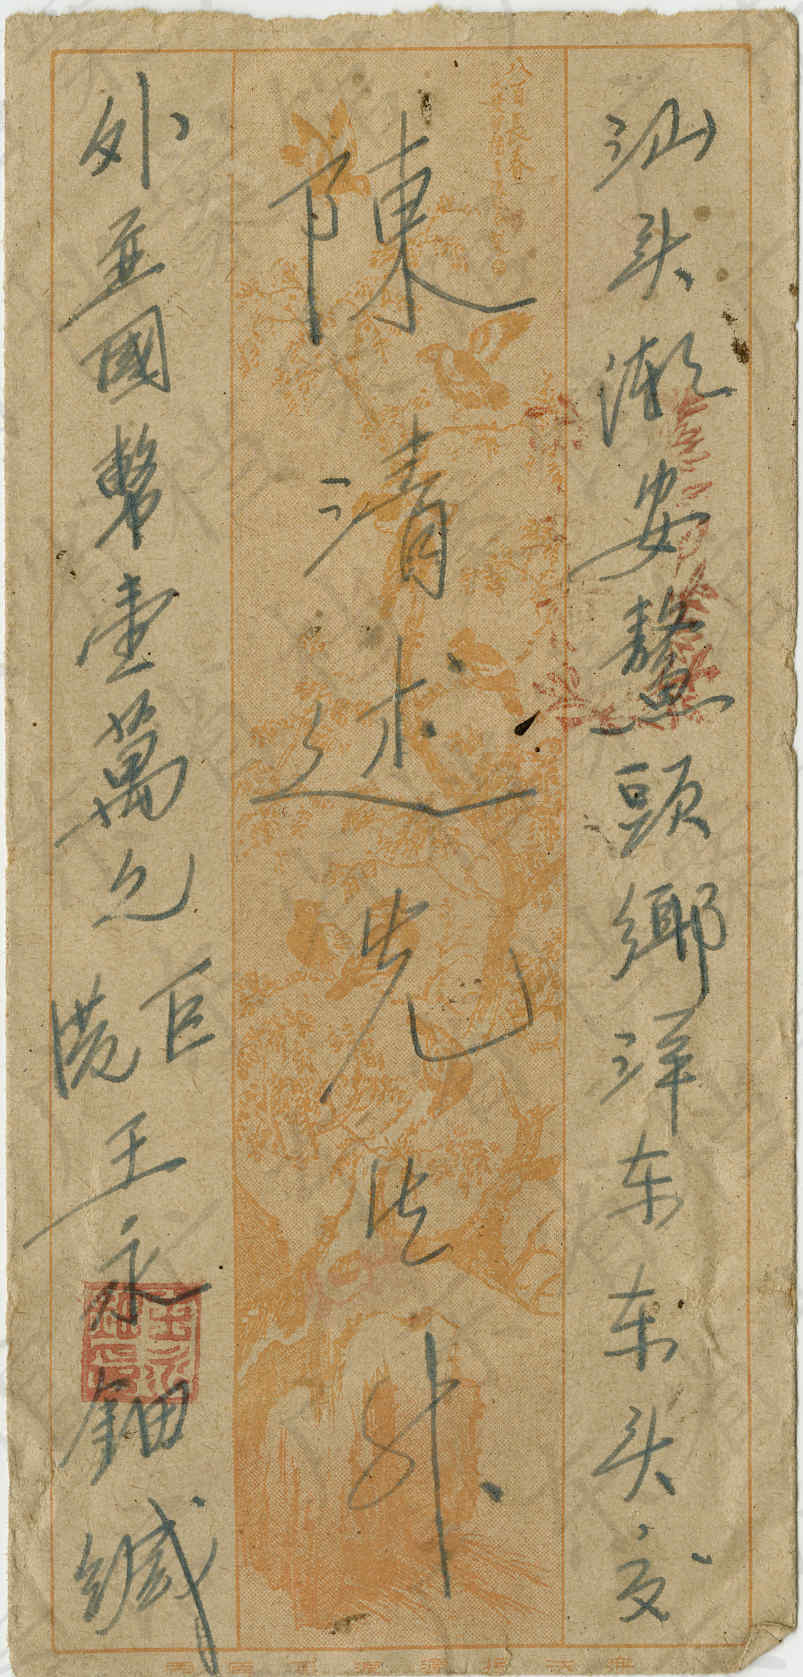 汕头潮安鰲頭鄉洋东东头交
陳清述先生升
外並國幣壹萬元
叻港王永鈿緘